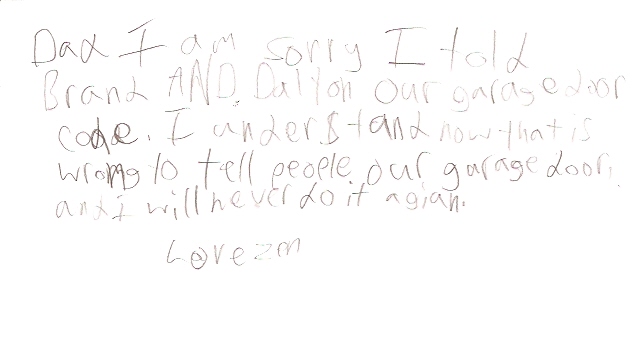 Dad I am sorry I told
Brand AND Dalton our garage door
code. I understand now that is
wrong to tell people our garage door,
and I will never do it agian.
Love zm